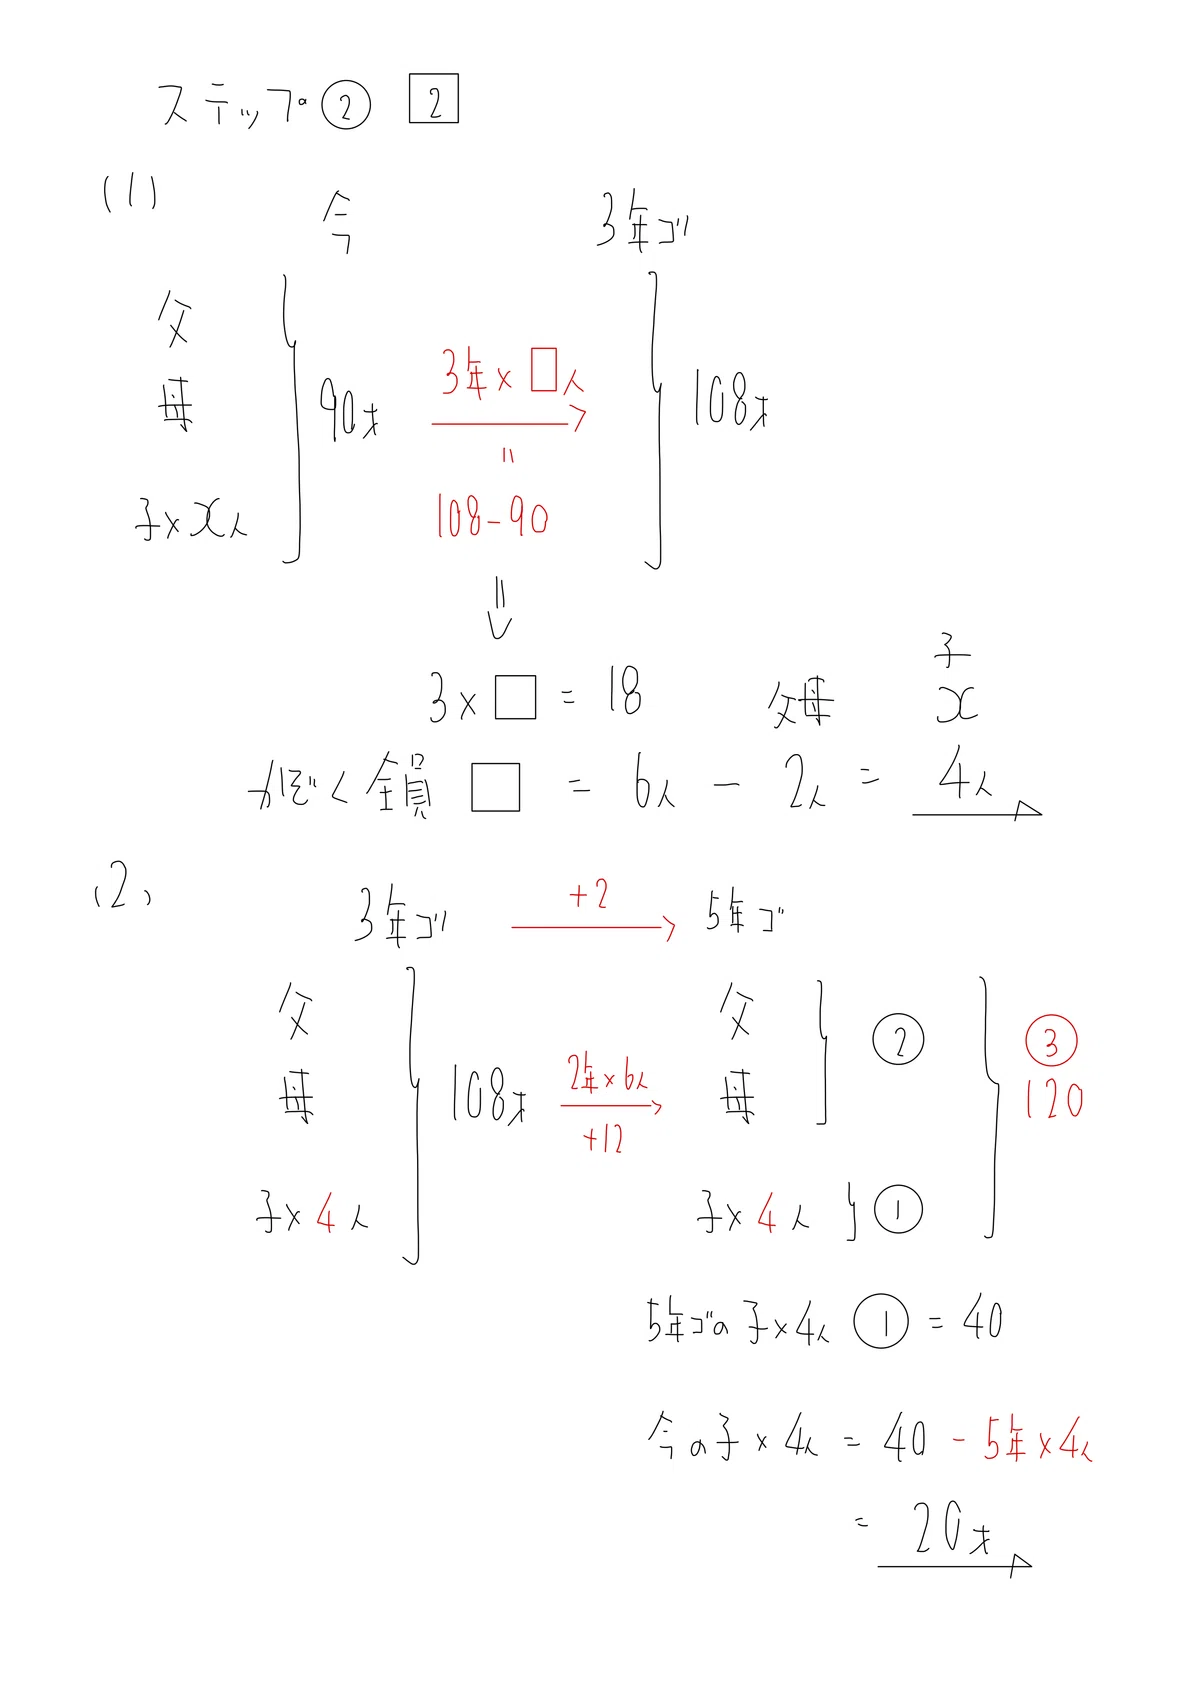 ステップ② 2
(1)
今 3年ゴ
父
母
子×x人
90才
3年×□人
=
108-90
108才
3×□=18
父母 子 x
かぞく全員□=6人-2人=4人
(2)
3年ゴ +2 5年ゴ
父
母
子×4人
108才
2年×6人
+12
父
母
②
子×4人 ①
③
120
5年ゴの子×4人 ①=40
今の子×4人=40-5年×4人
=20才